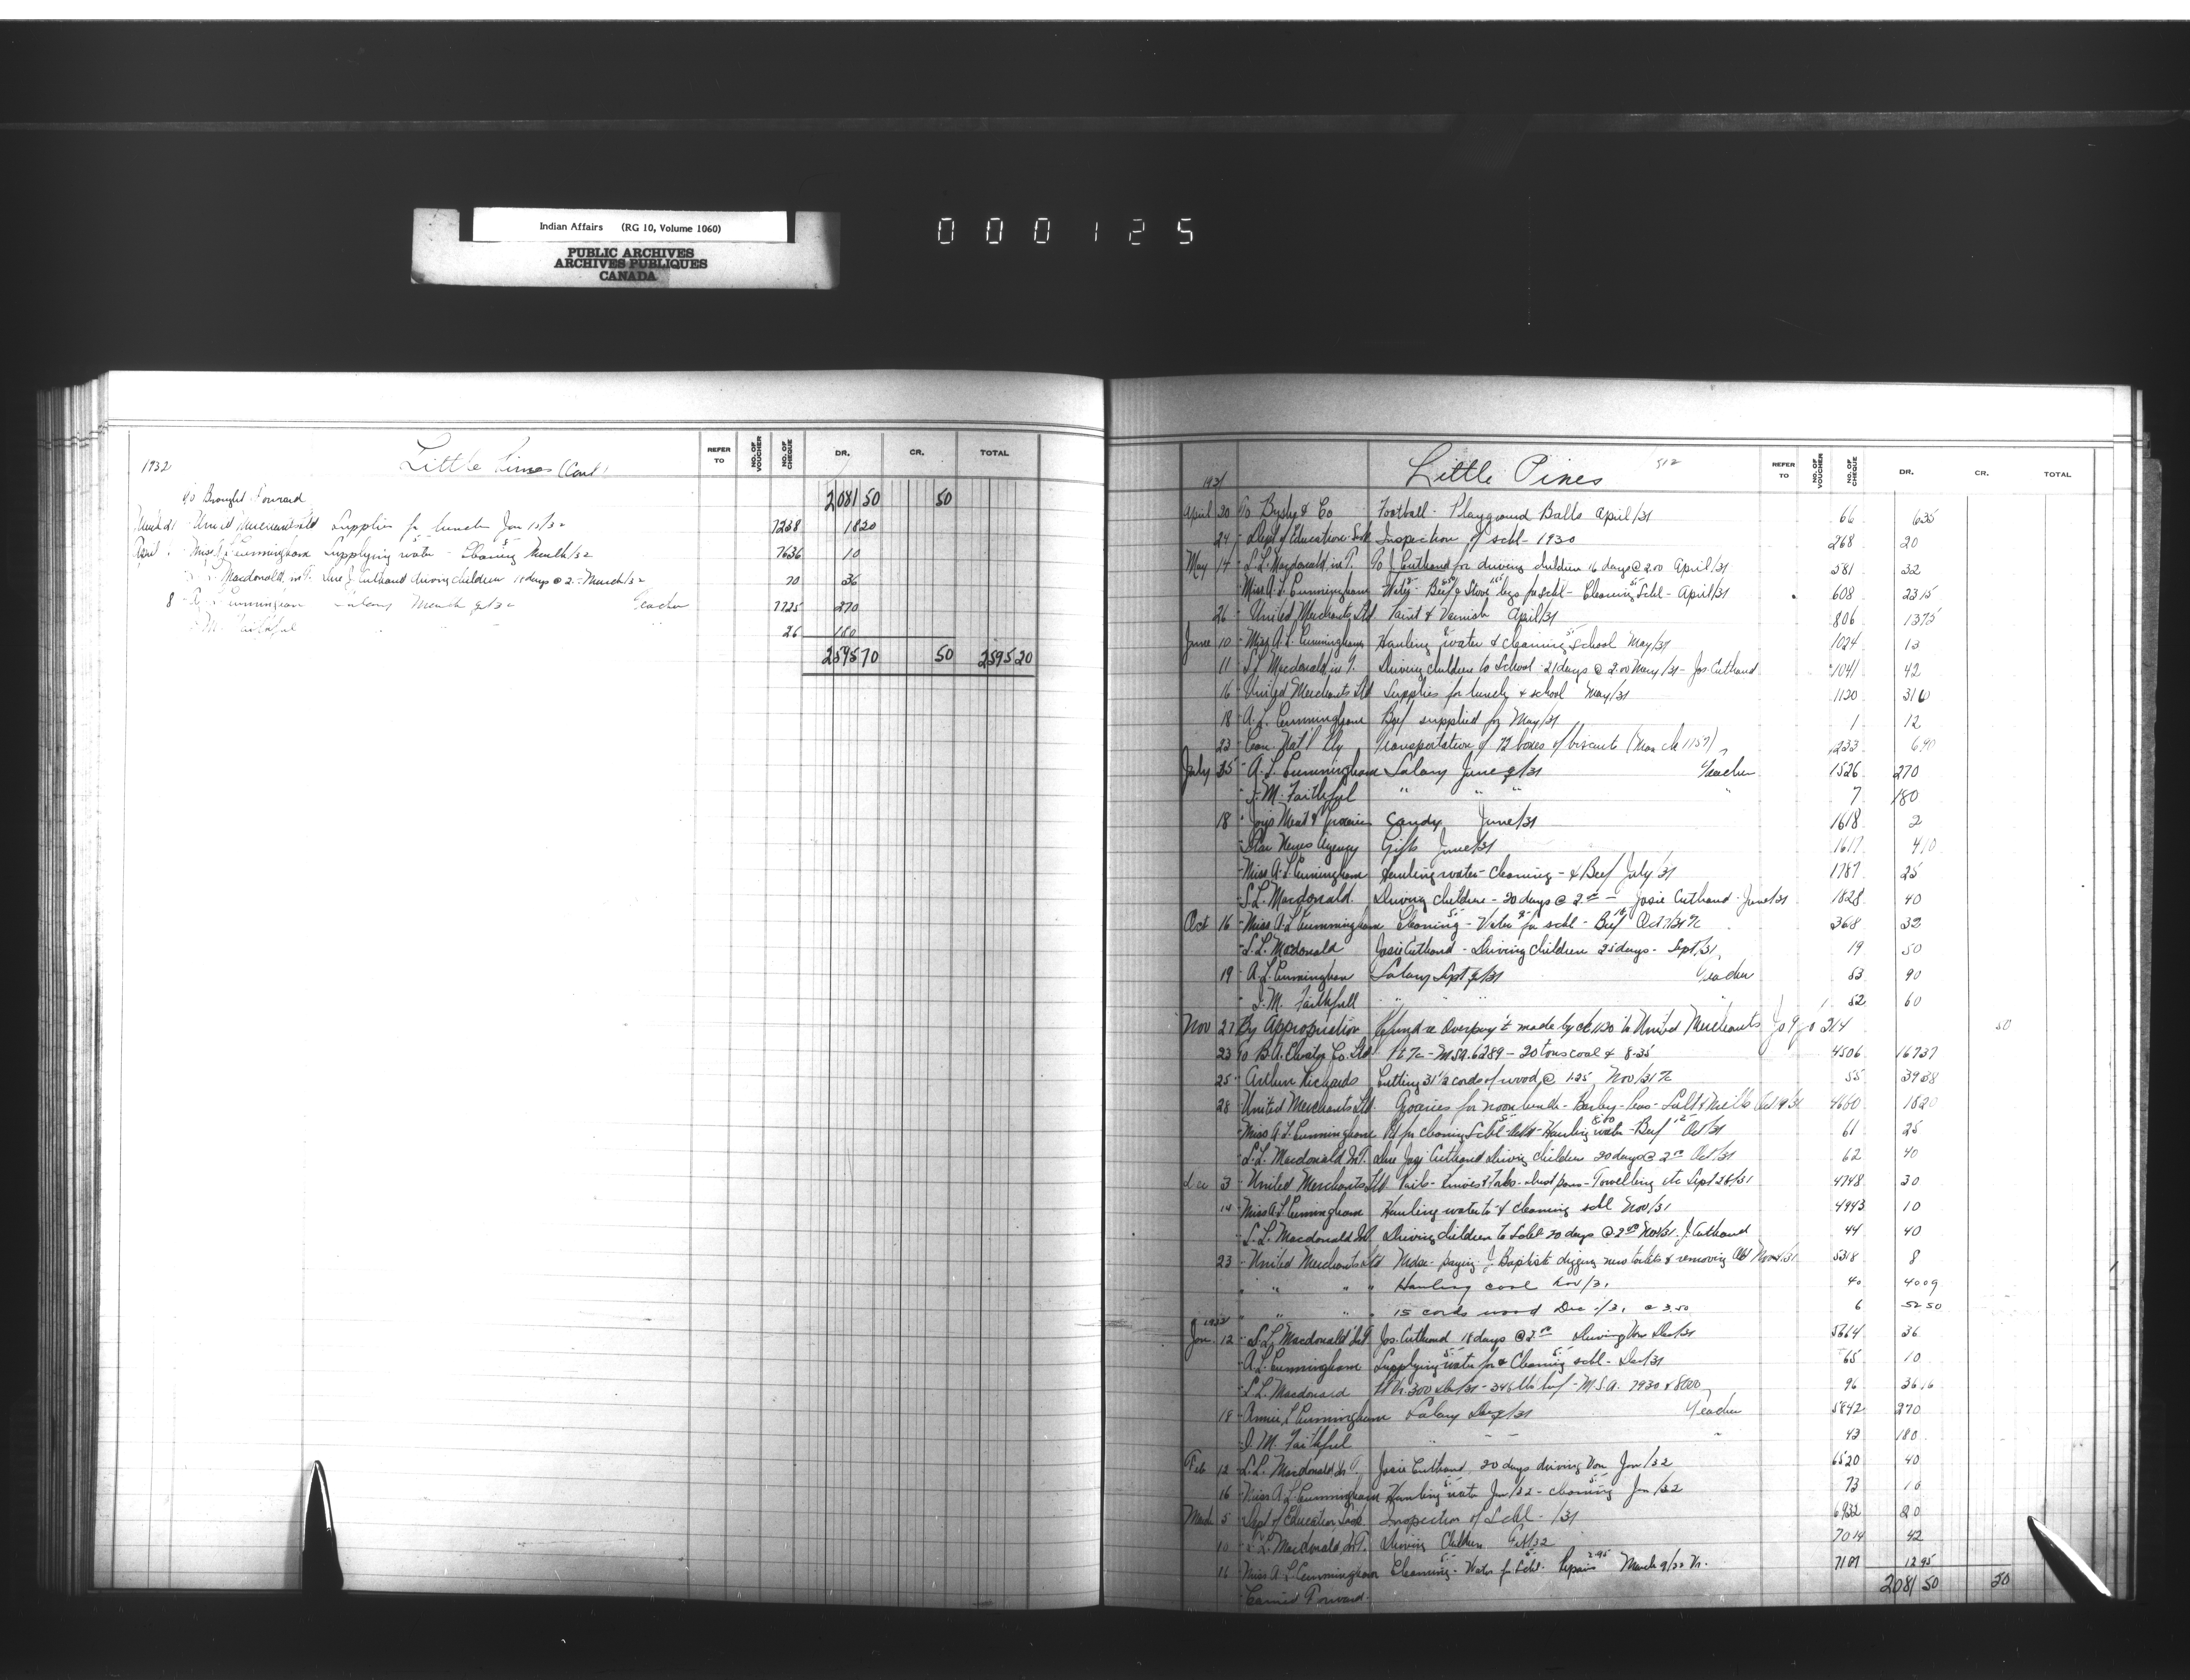 Indian Affairs (RG 10, Volume 1060)
PUBLIC ARCHIVES
ARCHIVES PUBLIQUES
CANADA
000125
1932 Little Pines (Cont) REFER TO NO. OF VOUCHER NO. OF CHEQUE DR. CR. TOTAL
To Brought Forward 2081 50 50
March 21 United Merchants Ltd Supplies for lunch Jan 7238 18 20
April Miss A L Cunningham Supplying water 5- Cleaning March/32 7636 10
Macdonald, in T. Due J. Cuthand driving children 18 days @ 2.- March/32 70 36
8 Cunningham Salary March Teacher 7725 270
M. Faithful " " " 26 180
2595 70 50 2595 20
1931 Little Pines 512 REFER TO NO. OF VOUCHER NO. OF CHEQUE DR. CR. TOTAL
April 20 To & Co Football - Playground Balls April/31 66 6 35
24 Dept of Education Sask Inspection of schl - 1930 268 20
May 14 S. L. Macdonald, in T. To J. Cuthand for driving children 16 days @ 2.00 April/31 581 32
Miss A. L. Cunningham Water - Beef & Stove legs for schl - Cleaning Schl - April/31 608 23 15
26 United Merchants Ltd Paint & Varnish April/31 806 13 75
June 10 Miss A. L. Cunningham Hauling water & cleaning school May/31 1024 13
11 S. L. Macdonald, in T. Driving children to School 21 days @ 2.00 May/31 - Jos. Cuthand 1041 42
16 United Merchants Ltd Supplies for lunch & school May/31 1120 3 10
18 A. L. Cunningham Beef supplied for May/31 1 12
23 Can. Nat'l Rly Transportation of 12 boxes of biscuits 1233 6 90
July 15 A. L. Cunningham Salary June /31 Teacher 1526 270
M. Faithful " " " " 7 180
18 Meat & Groceries Candy June/31 1618 2
Star News Agency Gifts June/31 1617 4 10
Miss A. L. Cunningham Hauling water - Cleaning - & Beef July/31 1787 25
S. L. Macdonald. Driving children - 20 days @ 2.00 - Josie Cuthand - June/31 1828 40
Oct 16 Miss A. L. Cunningham Cleaning - Water for schl - Beef Oct 368 32
S. L. Macdonald Josie Cuthand - Driving children 25 days - Sept/31 19 50
19 A. L. Cunningham Salary Sept /31 Teacher 53 90
M. Faithfull " " " " 52 60
Nov 27 By Appropriation Refund re Overpay't made by to United Merchants 214 50
23 To B. A. Elevator Co. Ltd - M.S.A. 6289 - 20 tons coal & 8.35 4506 167 37
25 Arthur Richards Cutting 31½ cords of wood @ 1.25, Nov/31 55 39 38
28 United Merchants Ltd. Groceries for noon lunch - Barley - Peas - Salt & Milk 4660 18 20
Miss A. L. Cunningham for cleaning Schl - Hauling water - Beef Oct/31 61 25
S. L. Macdonald in T. Due Cuthand Driving Children 20 days @ 2.00 Oct/31 62 40
Dec 3 United Merchants Ltd Pails - Knives & Forks - dust pans - Towelling etc Sept 26/31 4748 30
14 Miss A L Cunningham Hauling water to & cleaning schl Nov/31 4943 10
S. L. Macdonald in T. Driving children to Schl 20 days @ 2.00 Nov/31. J. Cuthand 44 40
23 United Merchants Ltd Mdse - paying J. Baptiste digging new toilets & removing Old Nov/31 5318 8
" " " " Hauling coal Nov/31 40 40 09
" " " 15 cords wood Dec /31 @ 3.50 6 52 50
1932
Jan. 12 S. L. Macdonald in T. Jos. Cuthand 18 days @ 2.00 Driving Van Dec/31 5664 36
A. L. Cunningham Supplying water for & Cleaning schl - Dec/31 65 10
S. L. Macdonald Dec/31 - 346 lbs beef - M.S.A. 7930 & 8000 96 36 16
18 Annie L Cunningham Salary Dec /31 Teacher 5842 270
M. Faithful " " " 43 180
Feb 12 S. L. Macdonald, in T., Josie Cuthand, 20 days driving Van Jan/32 6520 40
16 Miss A L Cunningham Hauling water Jan/32 - cleaning Jan/32 73 10
March 5 Dept of Education, Sask Inspection of Schl - /31 6932 20
10 S. L. Macdonald, in T. Driving Children Feb/32 7014 42
16 Miss A L Cunningham Cleaning - Water for Schl. Repairs 2.95 March 9/32 7107 12 95
Carried Forward 2081 50 50